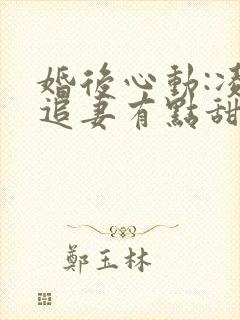 婚後心動:凌
追妻有點甜
鄭玉林